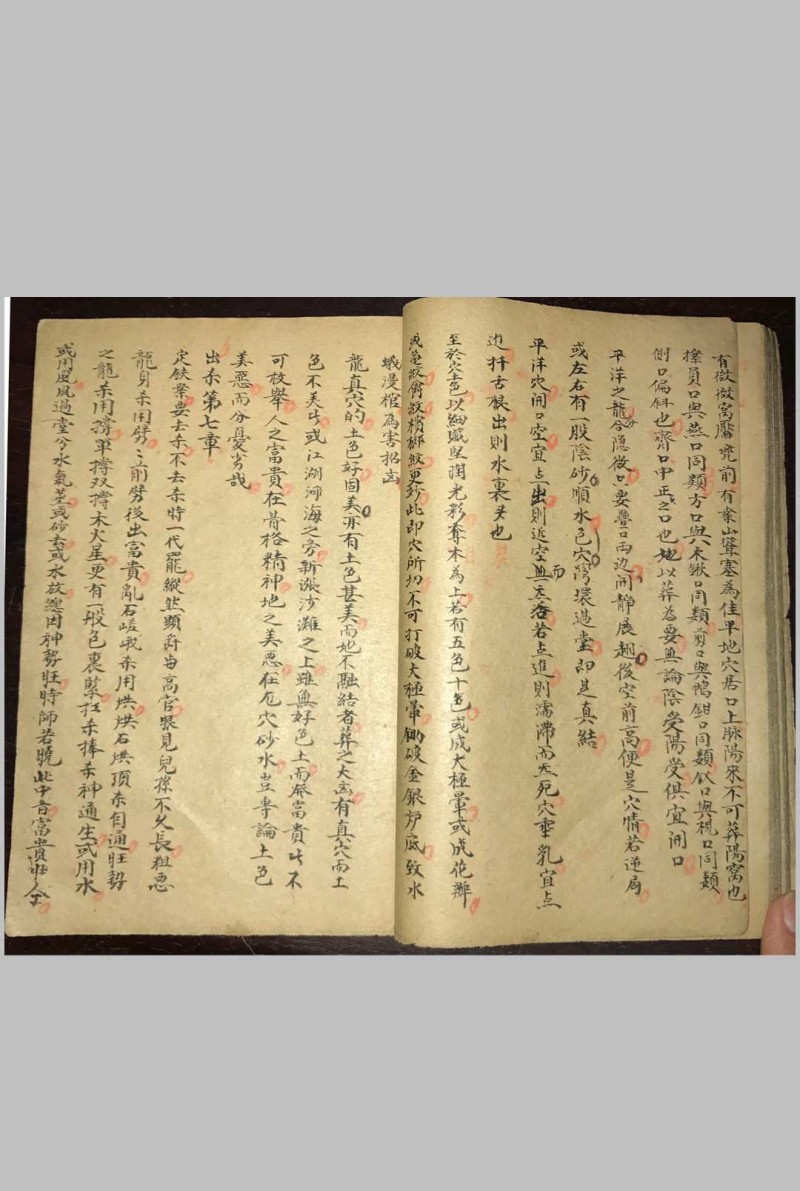 有微微窩靨兜前有案山聳塞為佳平地穴居口上脉陽來不可葬陽窩也
員口與燕口同類方口與木鍬口同類剪口與鴨鉗口同類釵口與梘口同類
側口偏斜也齊口中正之口也地以葬為要無論陰受陽受俱宜開口
平洋之龍分合隐微只要疊口両边開静展翅後空前高便是穴情若逆局
或左右有一股陰砂順水色穴弯環過堂即是真結
平洋穴開口空宜点出則近空而無若点進則濡滯而無死穴垂乳宜点
進扦舌根出則水裹矣也
至於穴土色以細膩堅潤光彩奪木為上若有五色十色或成大極暈或成花瓣
或龜紋更妙此即穴所切不可打破大極暈鋤破金銀炉底致水
蟻漫棺為害招凶
龍真穴的土色好固美亦有土色甚美而地不融結者葬之大凶有真穴而土
色不美或江湖河海之旁新漲沙灘之上雖無好色土而發富貴不
可枚舉人之富貴在骨格精神地之美恶在龙穴砂水豈専論土色
美惡而分憂劣哉
出杀第七章
定鉄案要去杀不去杀時一代罷縱然顯爵由高官眼見兒孫不久長祖恶
龍身杀用劈劈前劈後出富貴亂石嵯峨杀用烘烘石烘頂杀自通旺势
之龍杀用撐单撐双撐木火星更有一般色裹緊扛杀捧杀神通生或用水
或用風風過堂兮水氣至或砂去或水放總因神势旺時師若曉此中音富貴